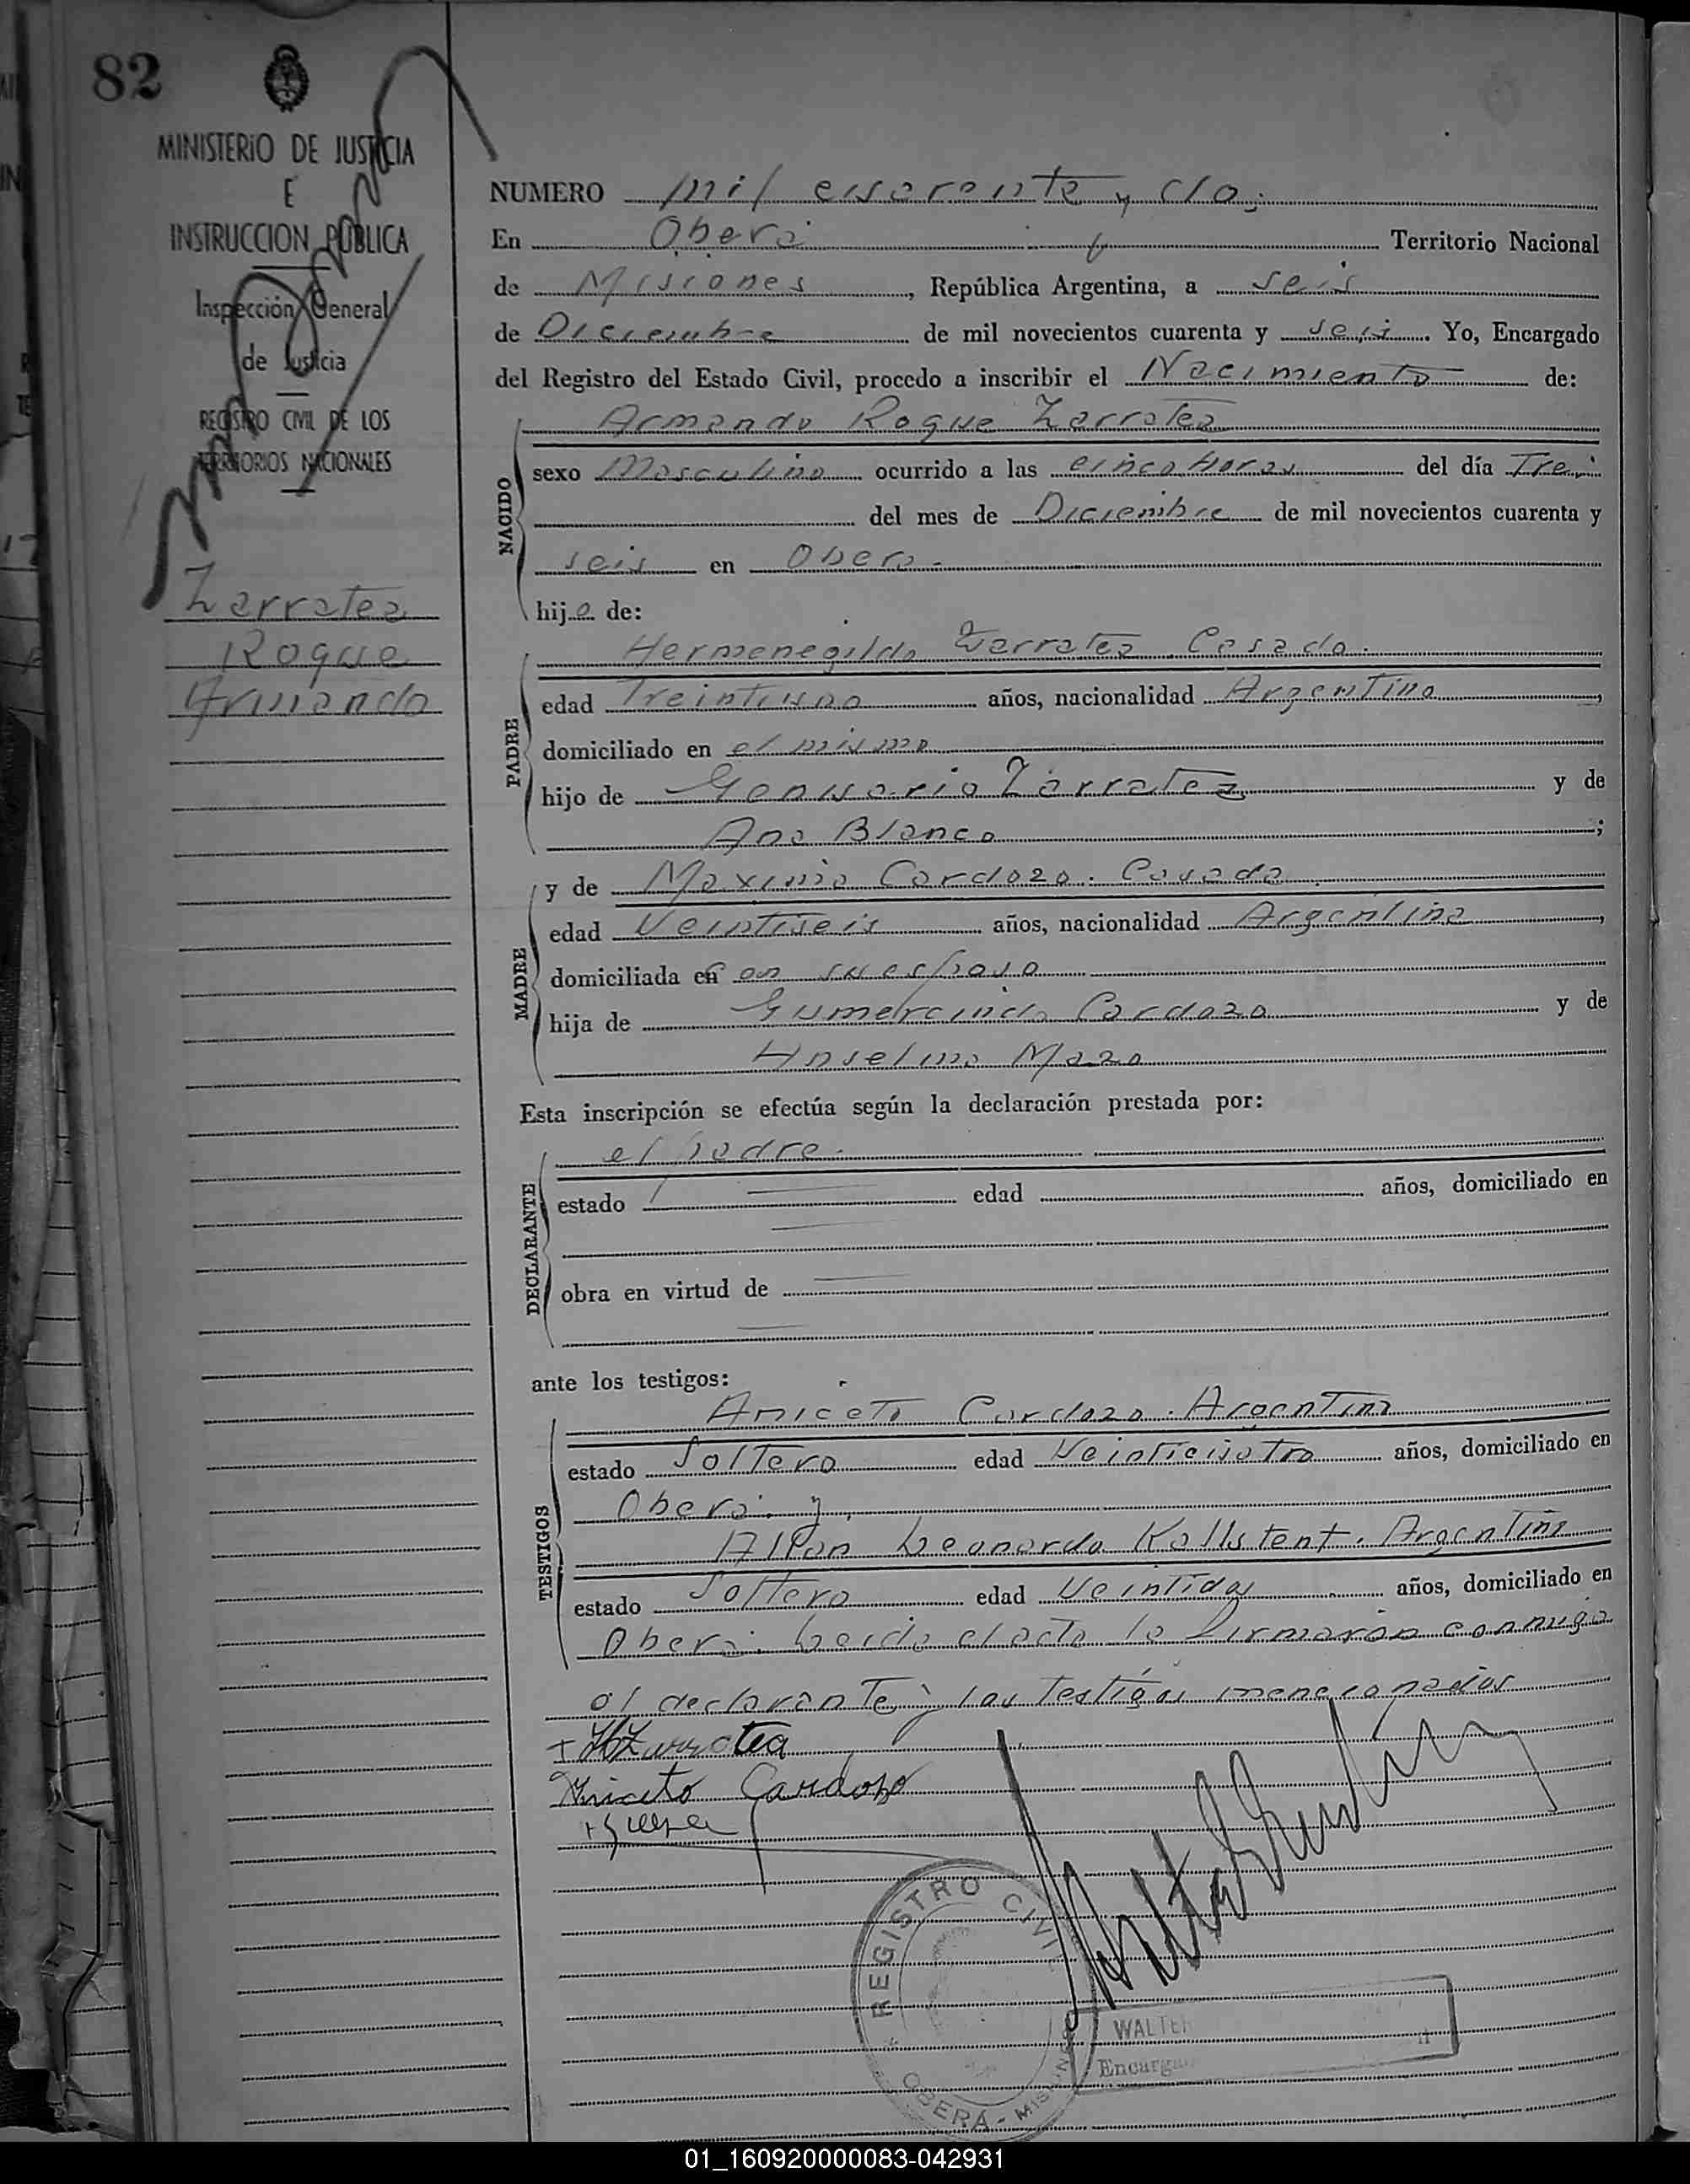 82
MINISTERIO DE JUSTICIA
E
INSTRUCCION PÚBLICA
Inspección General
de Justicia
REGISTRO CIVIL DE LOS
TERRITORIOS NACIONALES
Zarratea
Roque
Armando
NUMERO mil cuarenta y dos
En Oberá Territorio Nacional
de Misiones, República Argentina, a seis
de Diciembre de mil novecientos cuarenta y seis. Yo, Encargado
del Registro del Estado Civil, procedo a inscribir el Nacimiento de:
Armando Roque Zarratea
NACIDO
sexo Masculino ocurrido a las cinco Horas del día Tres
del mes de Diciembre de mil novecientos cuarenta y
seis en Oberá.
hijo de:
Hermenegildo Zarratea Casado.
PADRE
edad Treintiuno años, nacionalidad Argentino,
domiciliado en el mismo
hijo de Zarratea y de
Ana Blanco;
y de Maxima Cardozo. Casada
MADRE
edad Veintiseis años, nacionalidad Argentina,
domiciliada en con su esposo
hija de Gumercindo Cardozo y de
Anselma Mazo
Esta inscripción se efectúa según la declaración prestada por:
el padre.
DECLARANTE
estado edad años, domiciliado en
obra en virtud de
ante los testigos:
Aniceto Cardozo. Argentino
TESTIGOS
estado Soltero edad Veinticuatro años, domiciliado en
Oberá. y
Allan Leonardo Kallstent. Argentino
estado Soltero edad Veintidos años, domiciliado en
Oberá. Leida el acta la firmaron conmigo
el declarante y los testigos mencionados
HZarratea
Aniceto Cardozo
REGISTRO CIVIL
OBERÁ - MISIONES
WALTER
Encarga
01_160920000083-042931